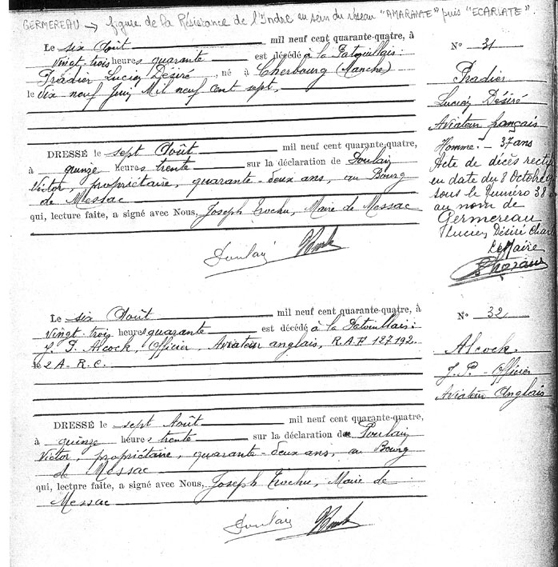 GERMEREAU → figure de la Résistance de l'Indre au sein du réseau "AMARANTE" puis "ECARLATE".
Le six Août mil neuf cent quarante-quatre, à
vingt trois heures quarante est décédé à la
Pradier Lucien Désiré, né à Cherbourg (Manche)
le dix neuf Juin Mil neuf cent sept.
DRESSÉ le sept Août mil neuf cent quarante-quatre,
à quinze heures trente sur la déclaration de Poulain
Victor, propriétaire, quarante-deux ans, au Bourg
de Messac
qui, lecture faite, a signé avec Nous, Joseph Trochu, Maire de Messac
Poulain
N° 31
Pradier
Lucien Désiré
Aviateur français
Homme - 37 ans
Acte de décès rect
en date du 8 Octob
sous le Numéro 38
au nom de
Germereau
Lucien, Désiré Char
Le Maire
Le six Août mil neuf cent quarante-quatre, à
Vingt-trois heures quarante est décédé à la
J. P. Alcock, Officier, Aviateur anglais, R.A.F 127.192.
A - R.C.
DRESSÉ le sept Août mil neuf cent quarante-quatre,
à quinze heures trente sur la déclaration de Poulain
Victor propriétaire, quarante-deux ans, au Bourg
de Messac
qui, lecture faite, a signé avec Nous, Joseph Trochu, Maire de
Messac
Poulain
N° 32
Alcock
J. P. - Officier
Aviateur Anglais